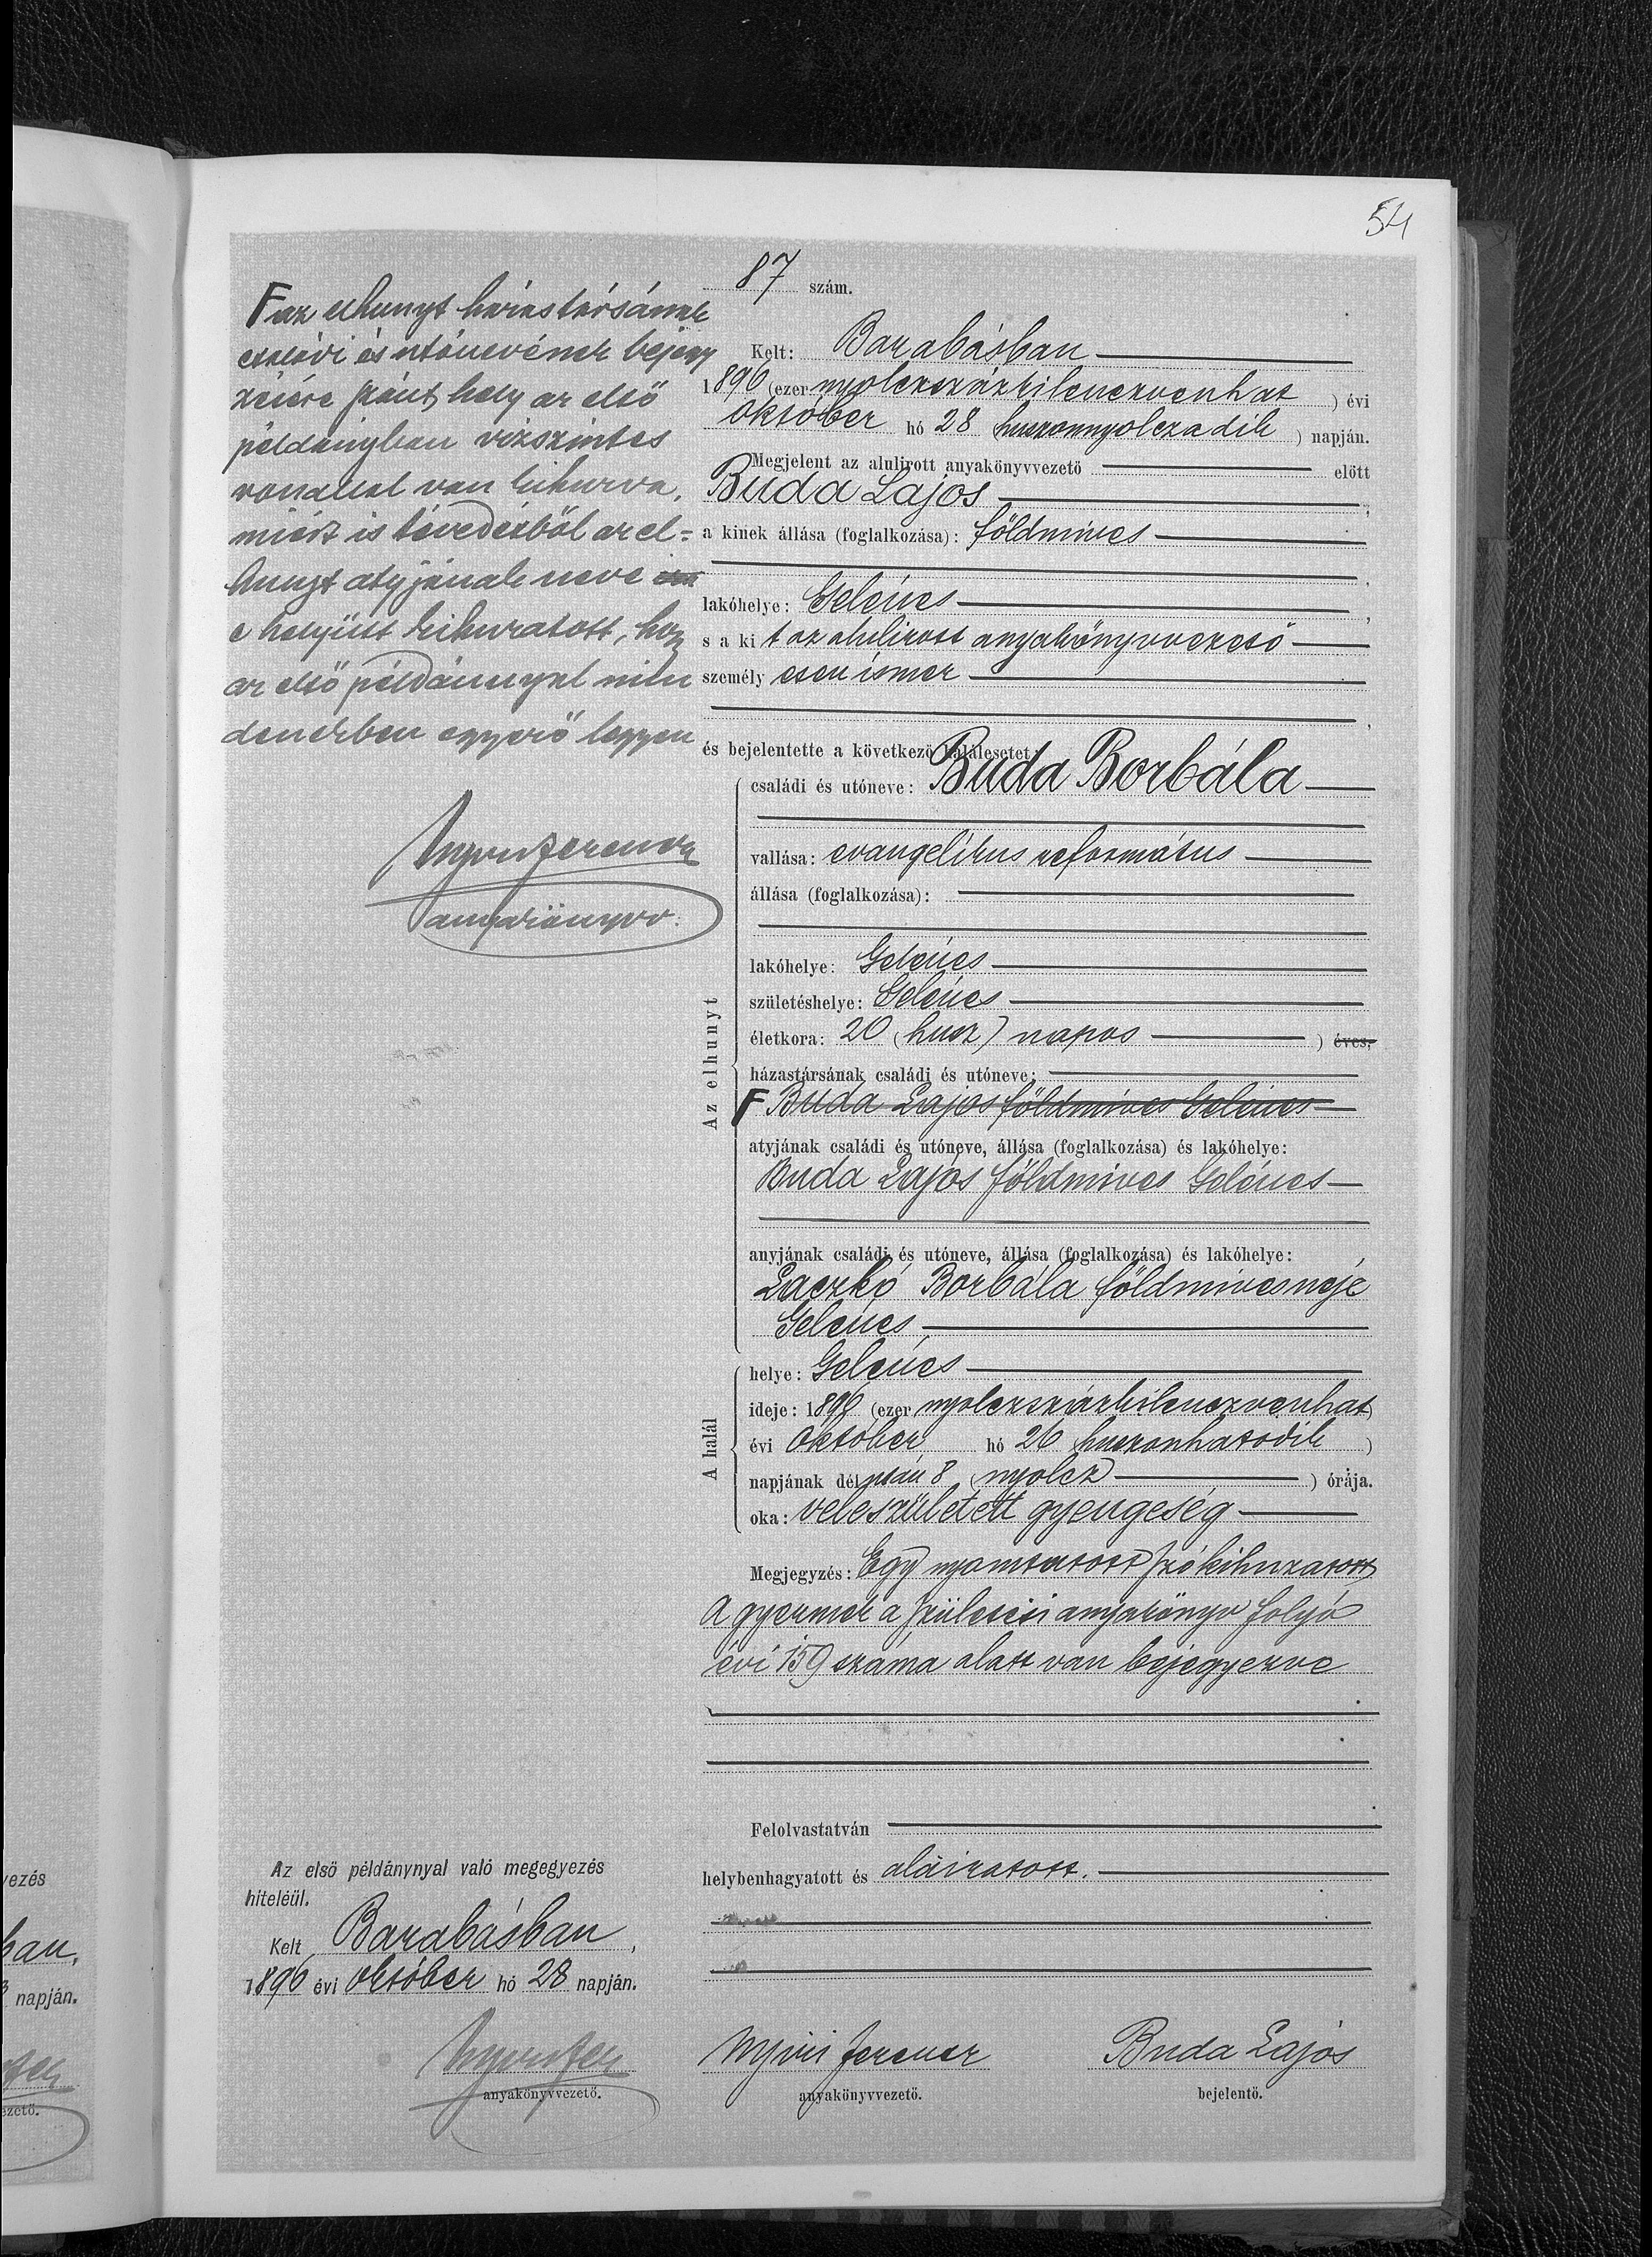 54
F az elhunyt házastársának
családi és utónevének bejegy
zésére szánt hely az első
példányban vizszintes
vonallal van kihuzva,
miért is tévedésből az el=
hunyt atyjának neve
e helyütt kihuzatott, hog
az első példánnyal min
denekben egyező legyen
Nyiri Ferencz
anyakönyvv.
87 szám.
Kelt: Barabásban
1896 (ezer nyolczszázkilenczvenhat ) évi
október hó 28 huszonnyolczadik ) napján.
Megjelent az alulirott anyakönyvvezető előtt
Buda Lajos ,
a kinek állása (foglalkozása): földmives
,
lakóhelye: Gelénes ,
s a ki t az alulirott anyakönyvvezető
személy esen ismer
,
és bejelentette a következő halálesetet:
Az elhunyt
családi és utóneve: Buda Borbála
vallása: evangelikus református
állása (foglalkozása):
lakóhelye: Gelénes
születéshelye: Gelénes
életkora: 20 (husz) napos ) éves.
házastársának családi és utóneve:
F Buda Lajos földmives Gelénes
atyjának családi és utóneve, állása (foglalkozása) és lakóhelye:
Buda Lajos földmives Gelénes
anyjának családi és utóneve, állása (foglalkozása) és lakóhelye:
Laczkó Borbála földmivesneje
Gelénes
A halál
helye: Gelénes
ideje: 1896 (ezer nyolczszázkilenczvenhat)
évi október hó 26 huszonhatodik )
napjának dél után 8 (nyolcz ) órája.
oka: veleszületett gyengeség
Megjegyzés: Egy nyomtatott szó kihuzatott
A gyermek a születési anyakönyv folyó
évi 159 száma alatt van bejegyezve
Felolvastatván
helybenhagyatott és aláiratott.
Az első példánynyal való megegyezés
hiteléül.
Kelt Barabásban,
1896 évi október hó 28 napján.
Nyiri Fer
anyakönyvvezető.
Nyiri Ferencz
anyakönyvvezető.
Buda Lajos
bejelentő.
ezés
ban,
napján.
ezető.